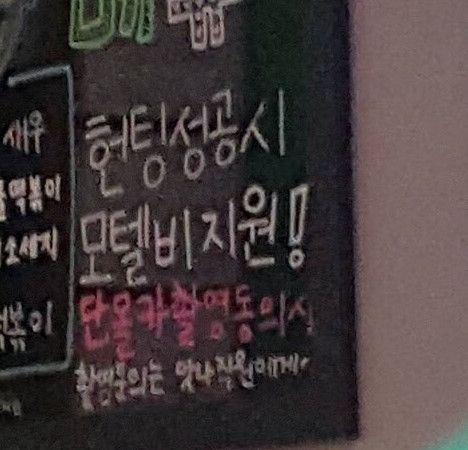 새우
떡볶이
소세지
볶이
헌팅성공시
모텔비지원!
단몰카촬영동의시
촬영문의는 맞나직원에게~